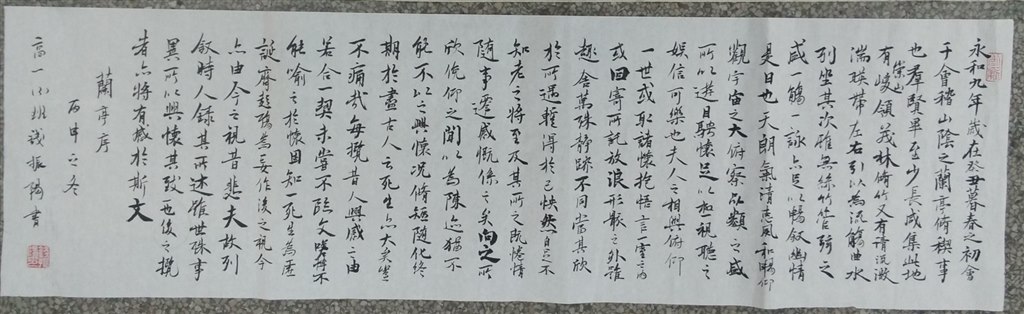 永和九年歲在癸丑暮春之初會
于會稽山陰之蘭亭脩禊事
也羣賢畢至少長咸集此地
有崇山峻領茂林脩竹又有清流激
湍暎帶左右引以為流觴曲水
列坐其次雖無絲竹管弦之
盛一觴一詠亦足以暢敘幽情
是日也天朗氣清惠風和暢仰
觀宇宙之大俯察品類之盛
所以遊目騁懷足以極視聽之
娛信可樂也夫人之相與俯仰
一世或取諸懷抱悟言一室之內
或因寄所託放浪形骸之外雖
趣舍萬殊靜躁不同當其欣
於所遇蹔得於己怏然自足不
知老之將至及其所之既惓情
隨事遷感慨係之矣向之所
欣俛仰之閒以為陳迹猶不
能不以之興懷況脩短隨化終
期於盡古人云死生亦大矣豈
不痛哉每攬昔人興感之由
若合一契未嘗不臨文嗟悼不
能喻之於懷固知一死生為虛
誕齊彭殤為妄作後之視今
亦由今之視昔悲夫故列
敘時人錄其所述雖世殊事
異所以興懷其致一也後之攬
者亦將有感於斯文
蘭亭序
丙申之冬
高一小班
振
書